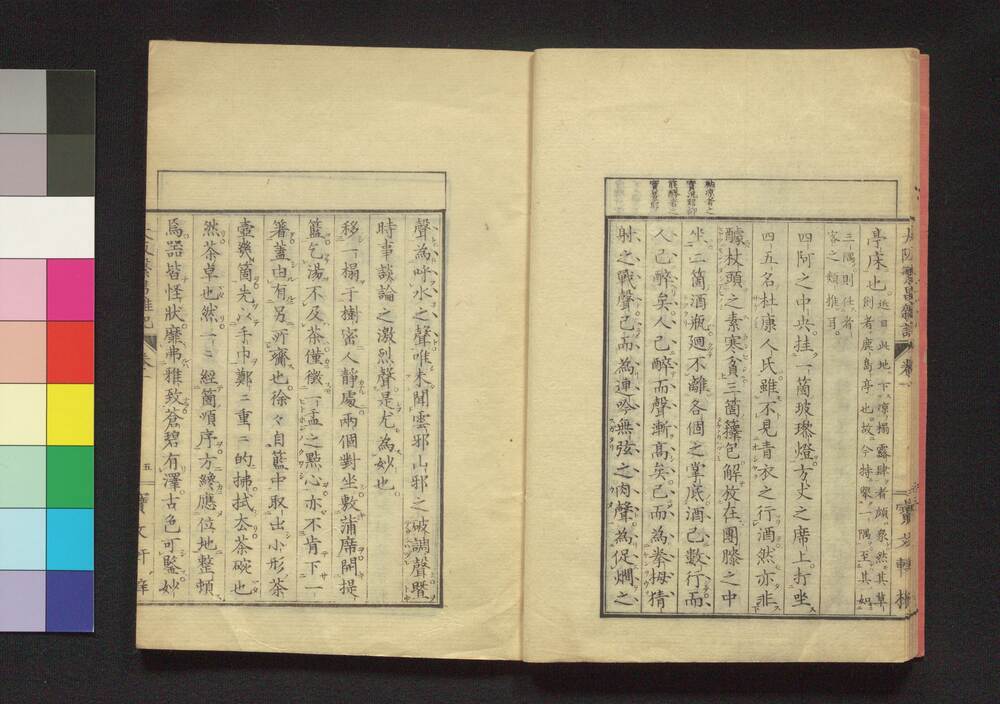 亭床也
近日此地下凉榻露肆者頗衆然其草
創者鹿島亭也故今特擧一隅至其如
三隅則仕者
客之類推耳
四阿之中央挂一箇玻瓈燈方丈之席上打坐
四五名杜康人氏雖不見青衣之行酒然亦非
醵杖頭之素寒貧三箇籜包解放在團膝之中
坐二箇酒瓶廻不離各個之掌底酒已數行而
人已醉矣人已醉而聲漸高矣已而為拳拇猜
射之戰聲已而為連吟無弦之肉聲為促爛之
聲為呼水之聲唯未聞雲邪山邪之破調聲曁
時事談論之激烈聲是尤為妙也
移一榻于樹密人靜處兩個對坐敷蒲席開提
籃乞湯不及茶僅徵一盂之點心亦不肯下一
箸蓋由有另所齎也徐々自籃中取出小形茶
壺幾箇先以手巾鄭二重二的拂拭去茶碗也
然茶卓也然一二經箇順序方纔應位地整頓
焉器皆怪狀靡弗雅致蒼碧有澤古色可鑒妙
五